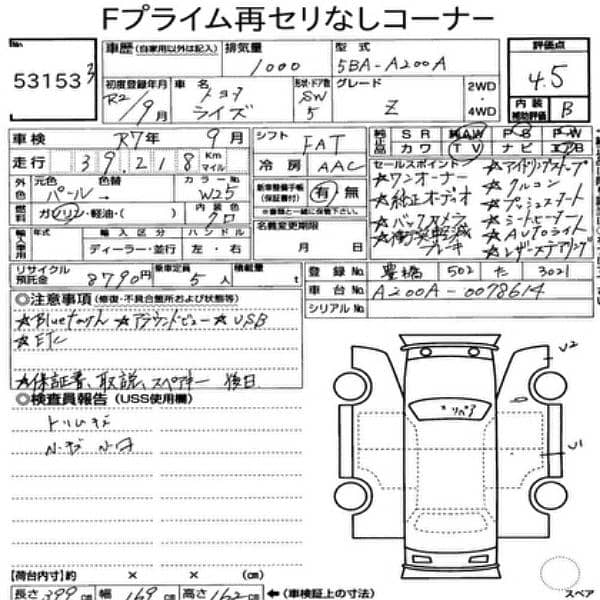 Fプライム再セリなしコーナー
No.
53153
車歴 (自家用以外は記入)
排気量 1000
型式 5BA-A200A
評価点 4.5
初度登録年月 R2/9月
車名 トヨタ ライズ
形状・ドア数 SW 5
グレード Z
2WD・4WD
内装補助評価 B
車検 R7年 9月
シフト FAT
装備品 SR AAW PS PW
カワ TV ナビ エアB
走行 39,218 Km マイル
冷房 AAC
セールスポイント
☆ワンオーナー
☆純正オーディオ
☆バックカメラ
☆衝突軽減ブレーキ
☆アイドリングストップ
☆クルコン
☆プッシュスタート
☆シートヒーター
☆AUTOライト
☆レザーステアリング
外色 元色 パール 色替
カラーNo. W25
新車整備手帳(保証書付) 有 無
※書類と一緒に保管下さい
燃料 ガソリン・軽油・( )
内装色 クロ
名義変更期限 月 日
輸入車用 年式 輸入区分 ハンドル
ディーラー・並行 左・右
リサイクル預託金 8790円
乗車定員 5人
積載量 t
登録No. 豊橋 502 た 3021
車台No. A200A-0078614
シリアルNo.
◎注意事項 (修復・不具合箇所および状態等)
☆Bluetooth ☆アラウンドビュー ☆USB
☆ETC
☆保証書、取説、スペアキー 後日
◎検査員報告 (USS使用欄)
トリムキズ
小キズ 小凹
リペア
U2
U1
【荷台内寸】約 × × (cm)
長さ 399cm 幅 169cm 高さ 162cm ←(車検証上の寸法)
スペア